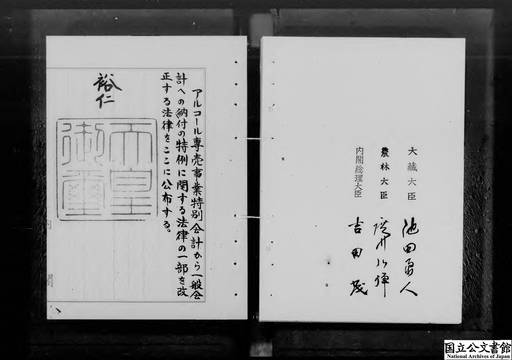 アルコール専売事業特別会計から一般会
計への納付の特例に関する法律の一部を改
正する法律をここに公布する。
裕仁
天皇
御璽
内閣
大蔵大臣 池田勇人
農林大臣 廣川弘禅
内閣総理大臣 吉田茂
国立公文書館
National Archives of Japan